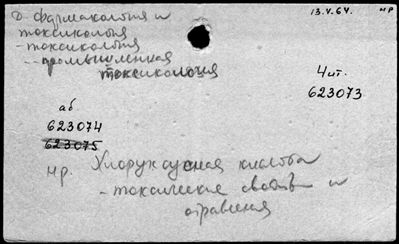 д. фармакология и
13.V.64.
мр
токсикология
- токсикология
-- промышленная
токсикология
Чит.
623073
аб
623074
623075
мр. Хлоруксусная кислота
- токсические свойства и
отравления